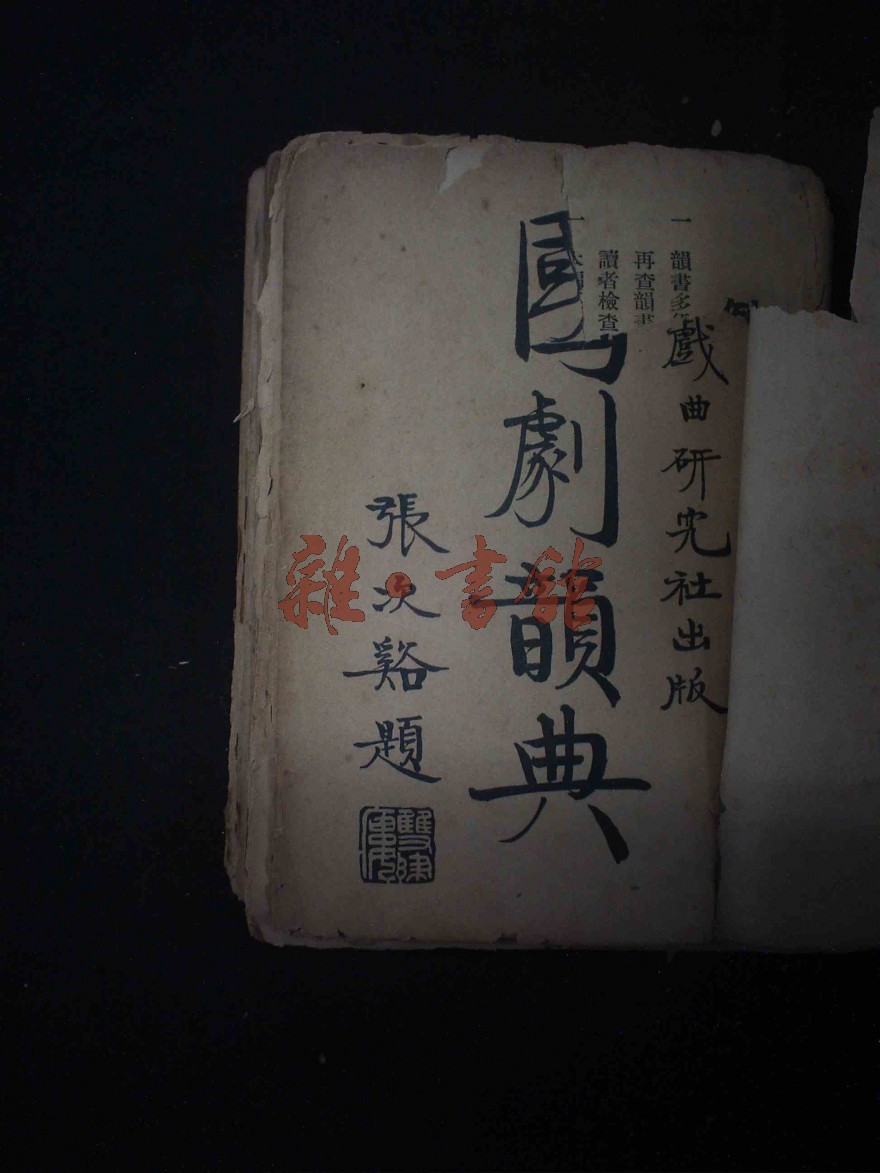 戲曲研究社出版
國劇韻典
張次谿題
一 韻書多
再查韻書
讀者檢查
一
雜·書館